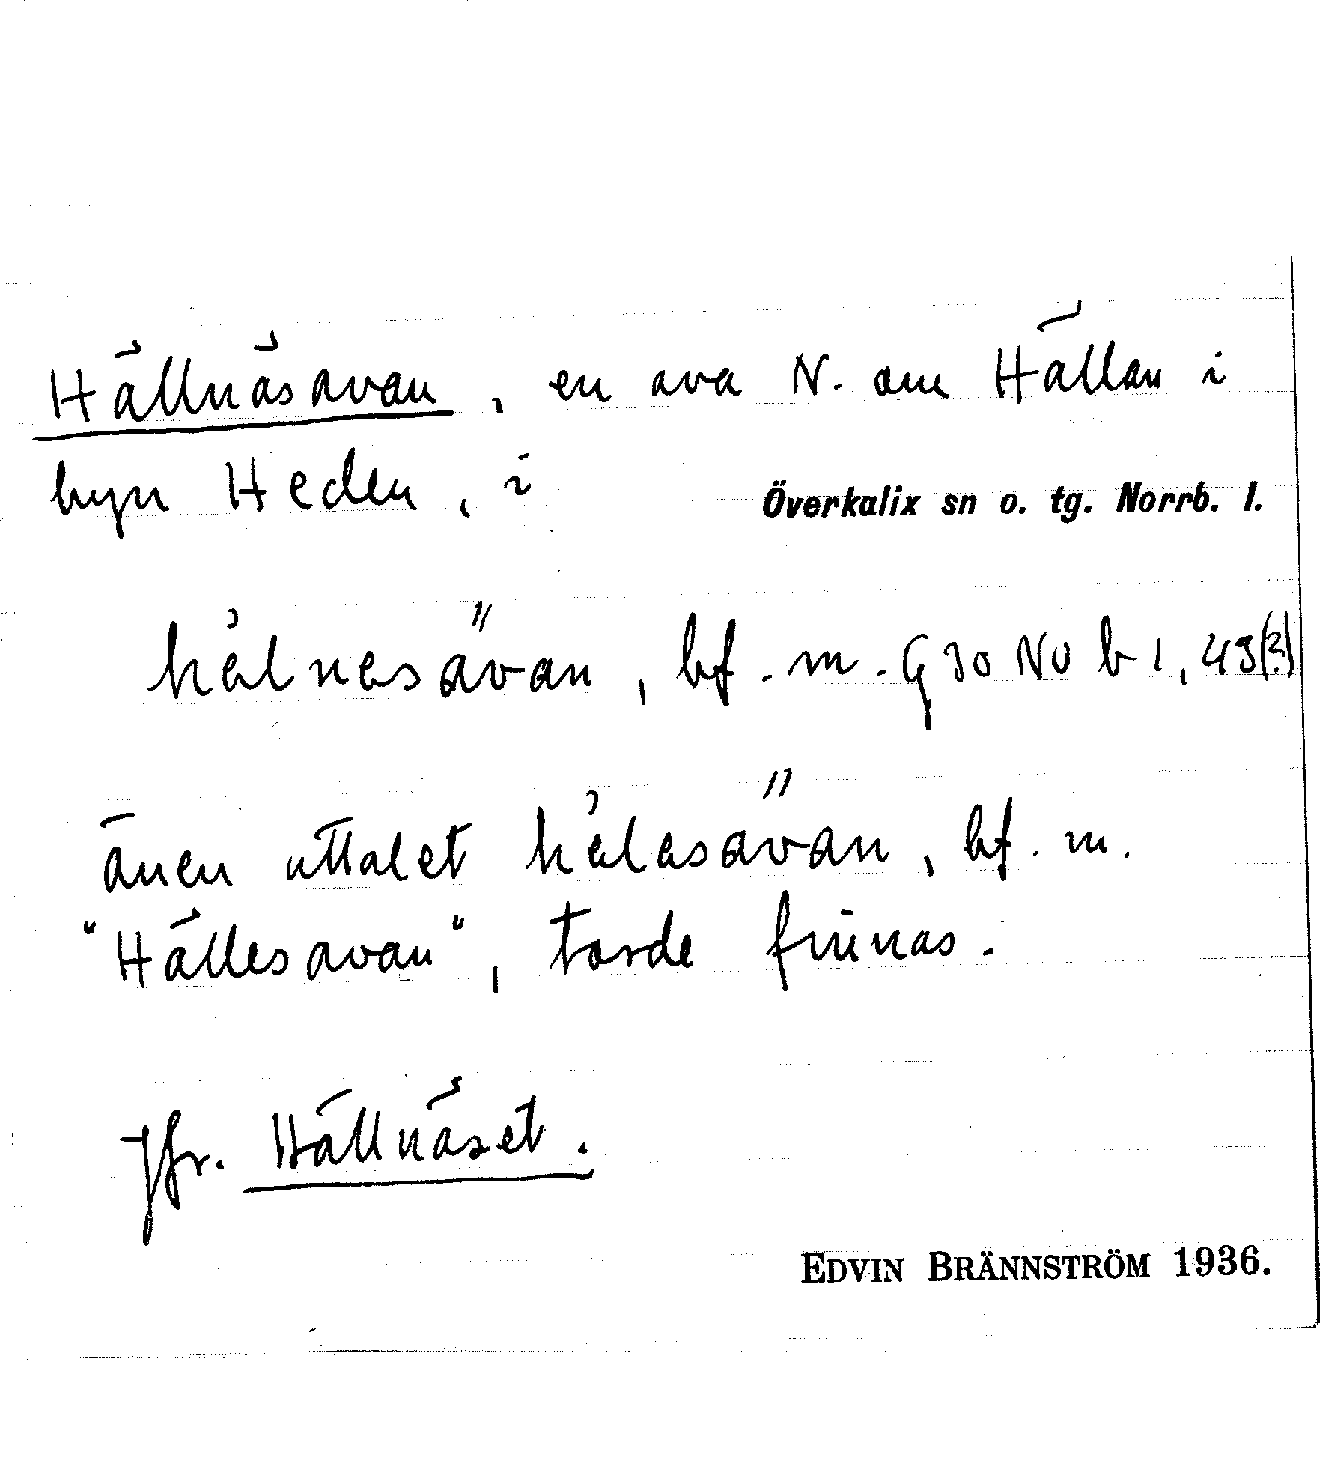 Hällnäsavan, en ava N. om Hällan i
byn Heden, i Överkalix sn o. tg. Norrb. l.
hälnesävan, bf. m. G 30 NV b 1, 43(?)
även uttalet hälesävan, bf. m.
"Hällesavan", torde finnas.
Jfr. Hällnäset.
EDVIN BRÄNNSTRÖM 1936.